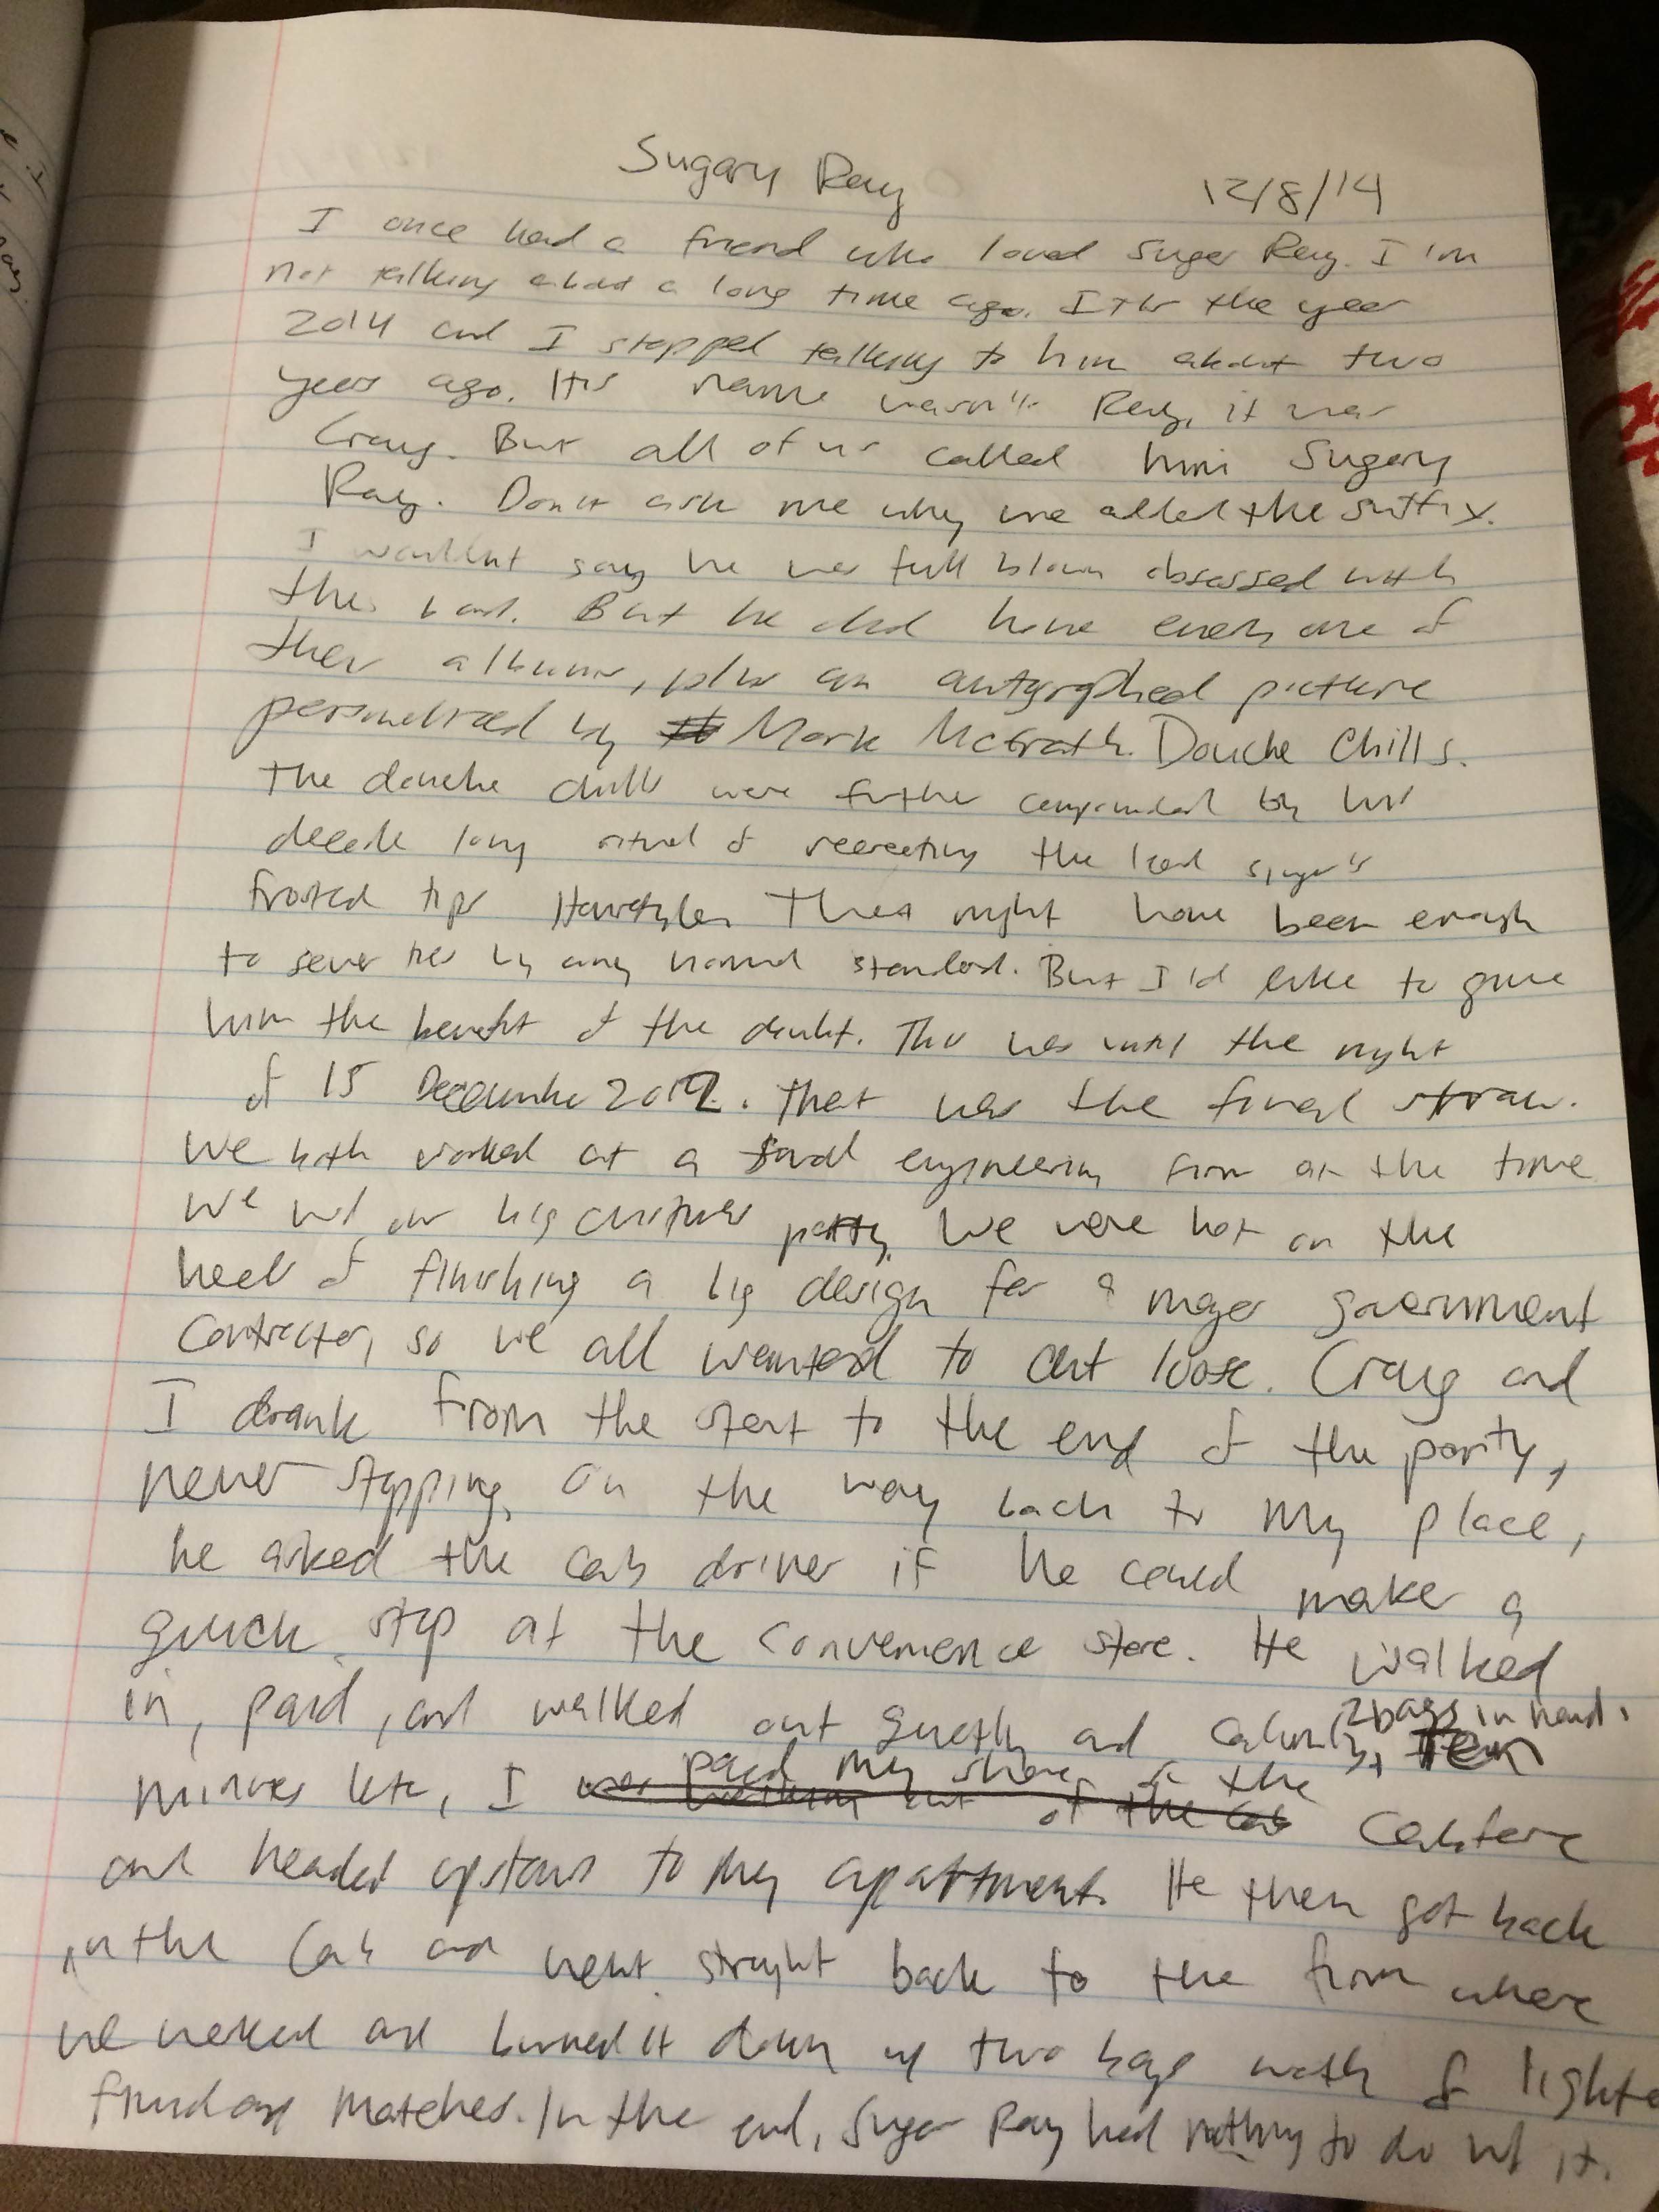 Sugary Ray 12/8/14
I once had a friend who loved Sugar Ray. I'm
not talking about a long time ago. It is the year
2014 and I stopped talking to him about two
years ago. His name wasn't Ray, it was
Craig. But all of us called him Sugary
Ray. Don't ask me why we added the suffix.
I wouldn't say he was full blown obsessed with
the band. But he did have every one of
their albums, plus an autographed picture
personalized by Mark McGrath. Douche Chills.
The douche chills were further compounded by his
decade long ritual of recreating the lead singer's
frosted tips Hairstyle. That might have been enough
to sever ties by any normal standard. But I'd like to give
him the benefit of the doubt. This was until the night
of 15 December 2012. That was the final straw.
We both worked at a small engineering firm at the time
We had our big christmas party. We were hot on the
heels of finishing a big design for a major government
Contractor, so we all wanted to cut loose. Craig and
I drank from the start to the end of the party,
never stopping. On the way back to my place,
he asked the cab driver if he could make a
quick stop at the convenience store. He walked
in, paid, and walked out quietly and calmly, 2 bags in hand. Ten
minutes later, I paid my share of the cabfare
and headed upstairs to my apartment. He then got back
in the cab and went straight back to the firm where
we worked and burned it down w/ two bags worth of lighter
fluid and matches. In the end, Sugar Ray had nothing to do w/ it.